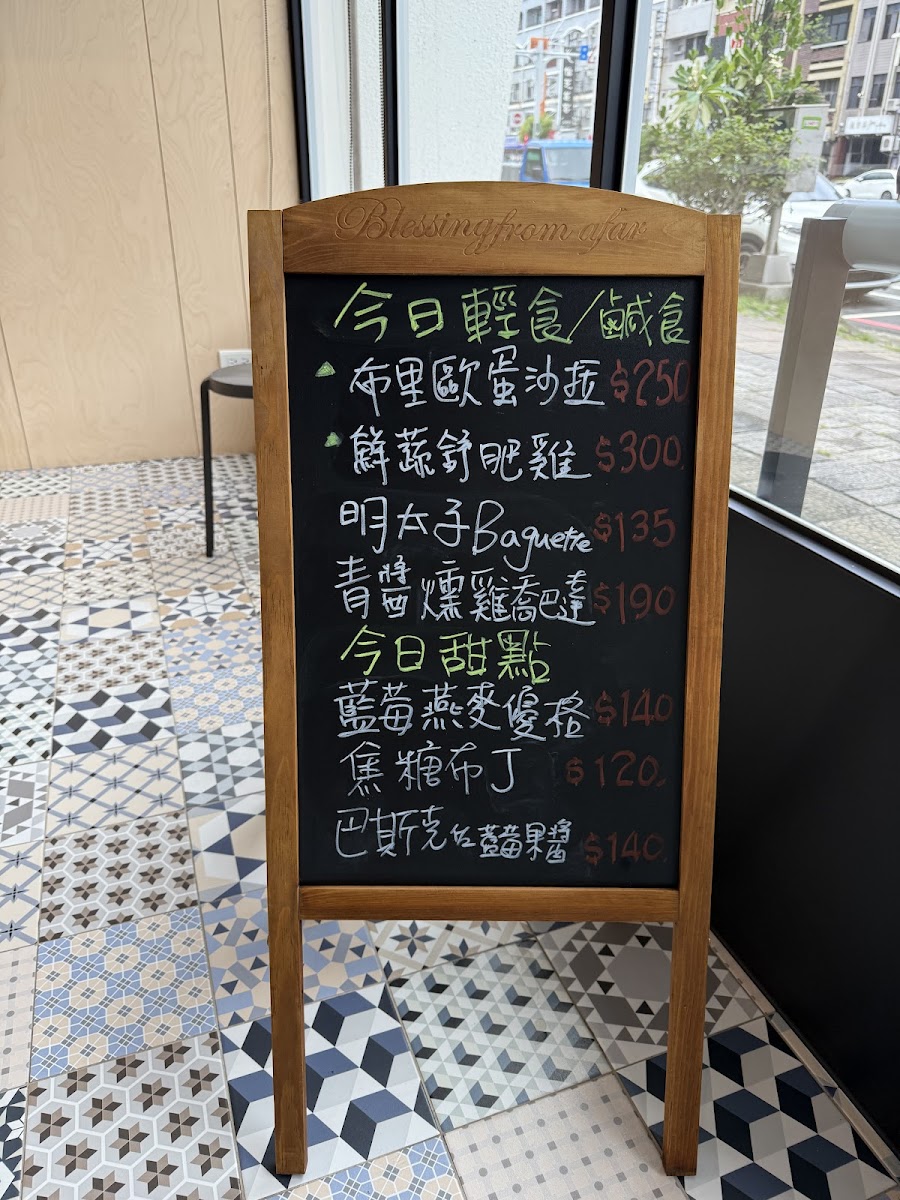 Blessing from afar
今日輕食/鹹食
布里歐蛋沙拉 $250
鮮蔬舒肥雞 $300
明太子Baguette $135
青醬燻雞喬巴達 $190
今日甜點
藍莓燕麥優格 $140
焦糖布丁 $120
巴斯克佐藍莓果醬 $140